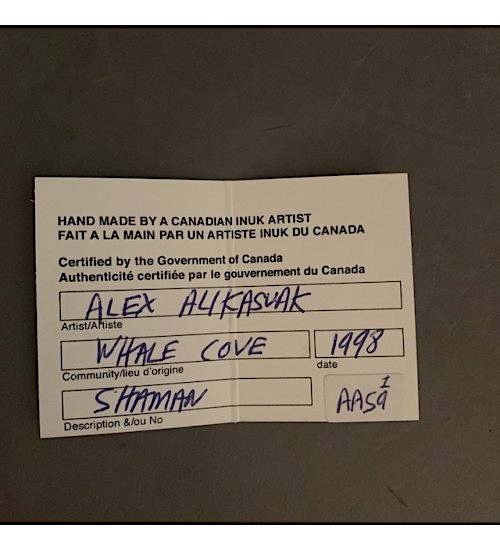 HAND MADE BY A CANADIAN INUK ARTIST
FAIT A LA MAIN PAR UN ARTISTE INUK DU CANADA
Certified by the Government of Canada
Authenticité certifiée par le gouvernement du Canada
ALEX ALIKASUAK
Artist/Artiste
WHALE COVE 1998
Community/lieu d'origine date
SHAMAN AAS9 I
Description &/ou No